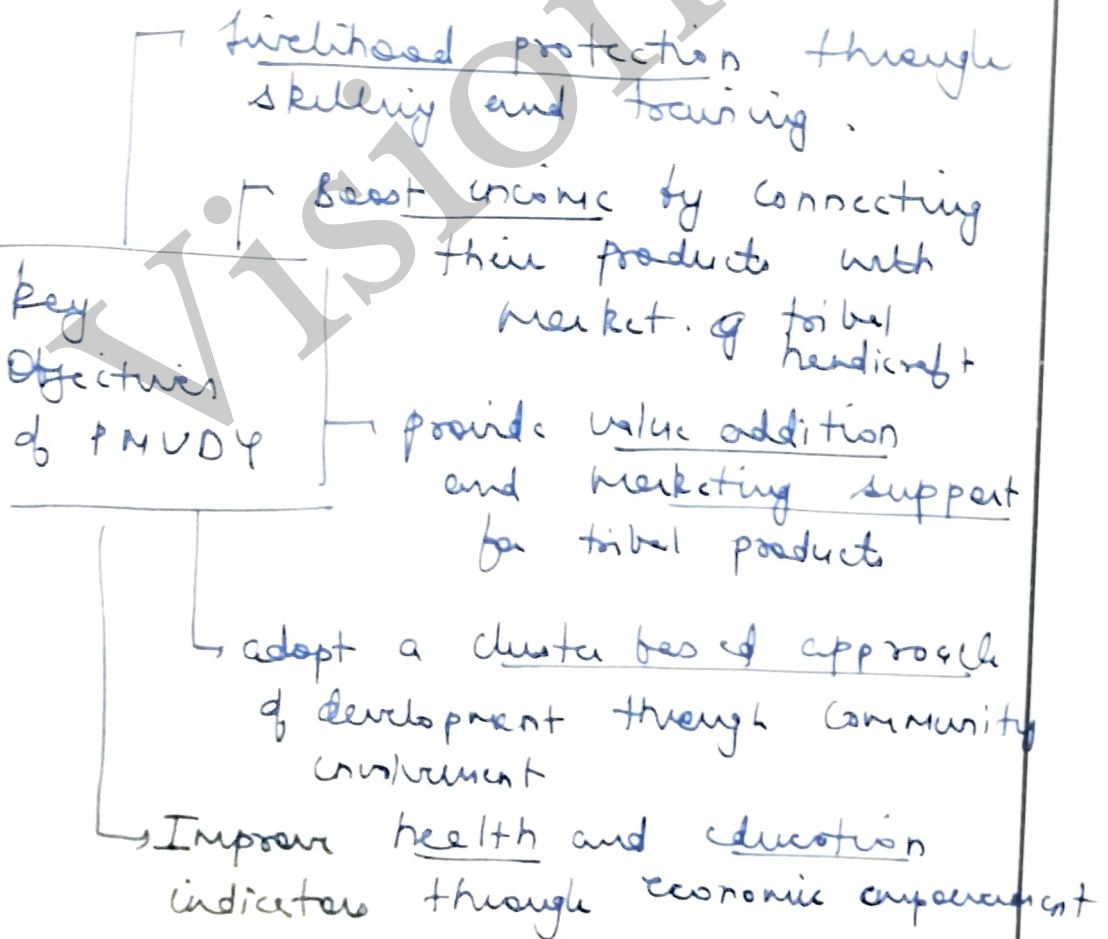 Livelihood protection through
skilling and training.
Boost income by connecting
their products with
market. of tribal
handicraft
Key
Objectives
of PMVDY
provide value addition
and marketing support
for tribal products
adopt a cluster based approach
of development through community
involvement
Improve health and education
indicators through economic empowerment
Vision